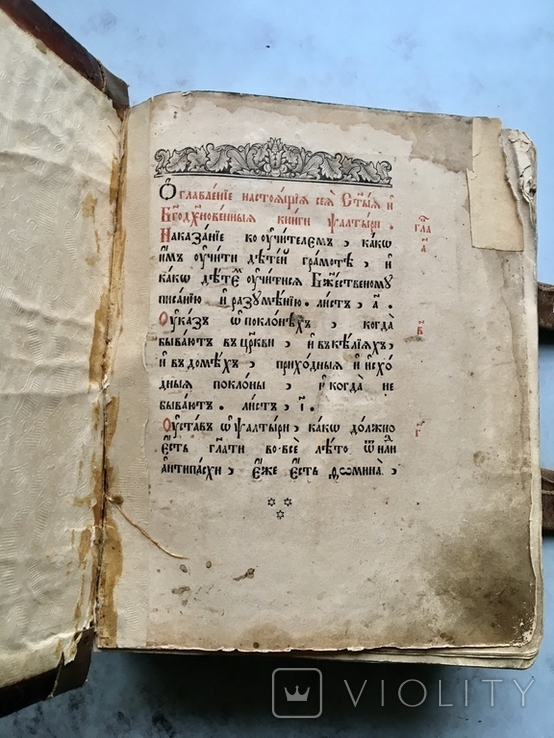 Ѻглавле́нїе настоѧ́щїѧ сеѧ̀ Ст҃ы́ѧ и҆
Бг҃одх҃нове́нныѧ кни́ги ѱалты́ри .
гла
а҃
Наказа́нїе ко ᲂу҆чи́телемъ , ка́кѡ
и҆̀мъ ᲂу҆чи́ти дѣте́й гра́мотѣ , и҆
ка́кѡ дѣ́темъ ᲂу҆чи́тисѧ Бж҃е́ственому
писа́нїю и҆ разꙋмѣ́нїю . ли́стъ , а҃ .
Оу҆ка́зъ ѡ҆ покло́нѣхъ , когда̀
в҃
быва́ютъ въ це́ркви и҆ въ ке́лїѧхъ ,
и҆ въ домѣ́хъ , прихо́дныѧ и҆ и҆схо́
дныѧ покло́ны , и҆ когда̀ не
быва́ютъ . ли́стъ , і҃ .
Оу҆ста́въ ѡ҆ ѱалты́ри , ка́кѡ до́лжно
г҃
є҆́сть гл҃а́ти во всѐ лѣ́то ѿ
а҆нтїпа́схи , є҆́же є҆́сть
VIOLITY